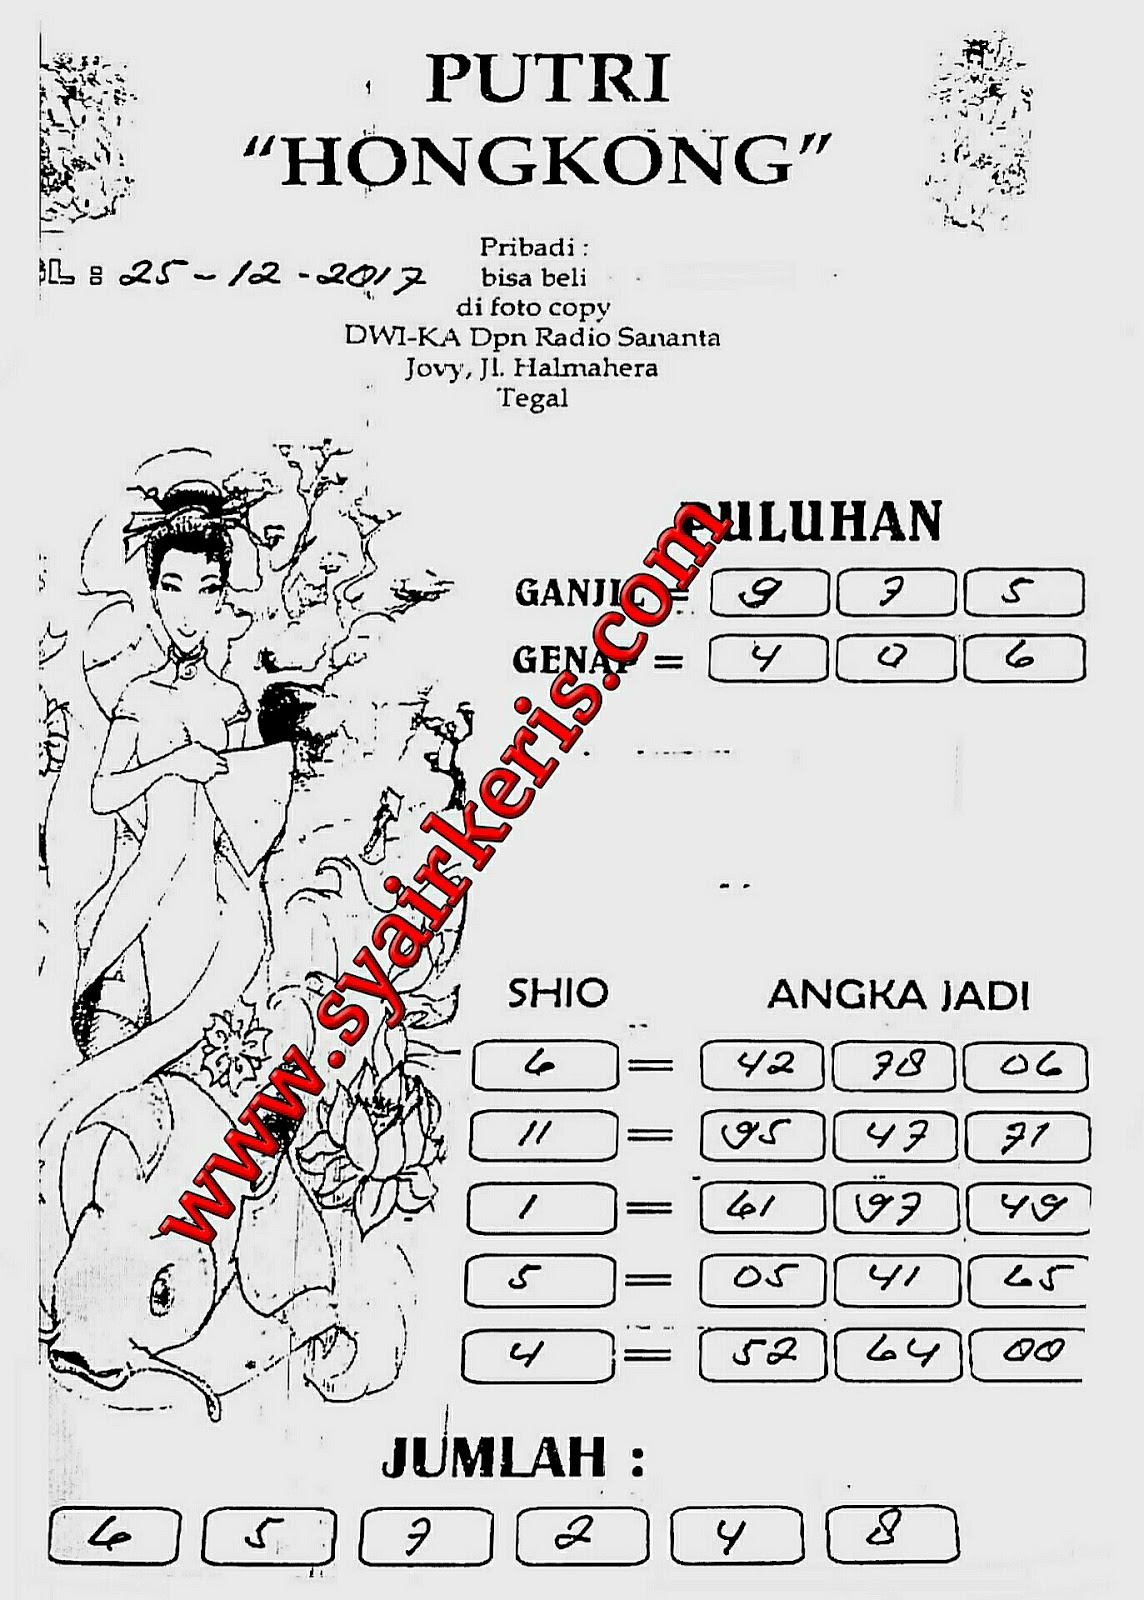 PUTRI
“HONGKONG”
Pribadi :
GL : 25-12-2017
bisa beli
di foto copy
DWI-KA Dpn Radio Sananta
Jovy, Jl. Halmahera
Tegal
PULUHAN
GANJIL = 9 7 5
GENAP = 4 0 6
www.syairkeris.com
SHIO ANGKA JADI
6 = 42 78 06
11 = 95 47 71
1 = 61 97 49
5 = 05 41 65
4 = 52 64 00
JUMLAH :
6 5 7 2 4 8